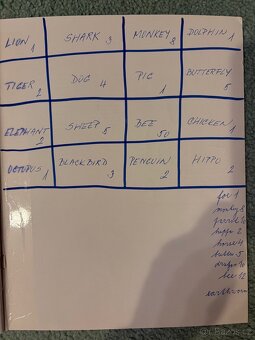 LION 1 SHARK 3 MONKEY 8 DOLPHIN 1
TIGER 2 DOG 4 PIG 1 BUTTERFLY 5
ELEPHANT 2 SHEEP 5 BEE 50 CHICKEN 1
OCTOPUS 1 BLACKBIRD 3 PENGUIN 2 HIPPO 2
for 1
hippo 2
horse 4
bee 12